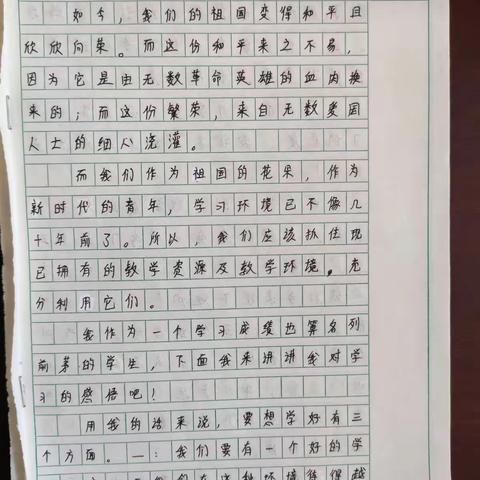 如今，我们的祖国变得和平且
欣欣向荣。而这份和平来之不易，
因为它是由无数革命英雄的血肉换
来的；而这份繁荣，来自无数爱国
人士的细心浇灌。
而我们作为祖国的花果，作为
新时代的青年，学习环境已不像几
十年前了。所以，我们应该抓住现
已拥有的教学资源及教学环境。充
分利用它们。
我作为一个学习成绩也算名列
前茅的学生，下面我来讲讲我对学
习的感悟吧！
用我的话来说，要想学好有三
个方面。一：我们要有一个好的学
在这种环境待得越